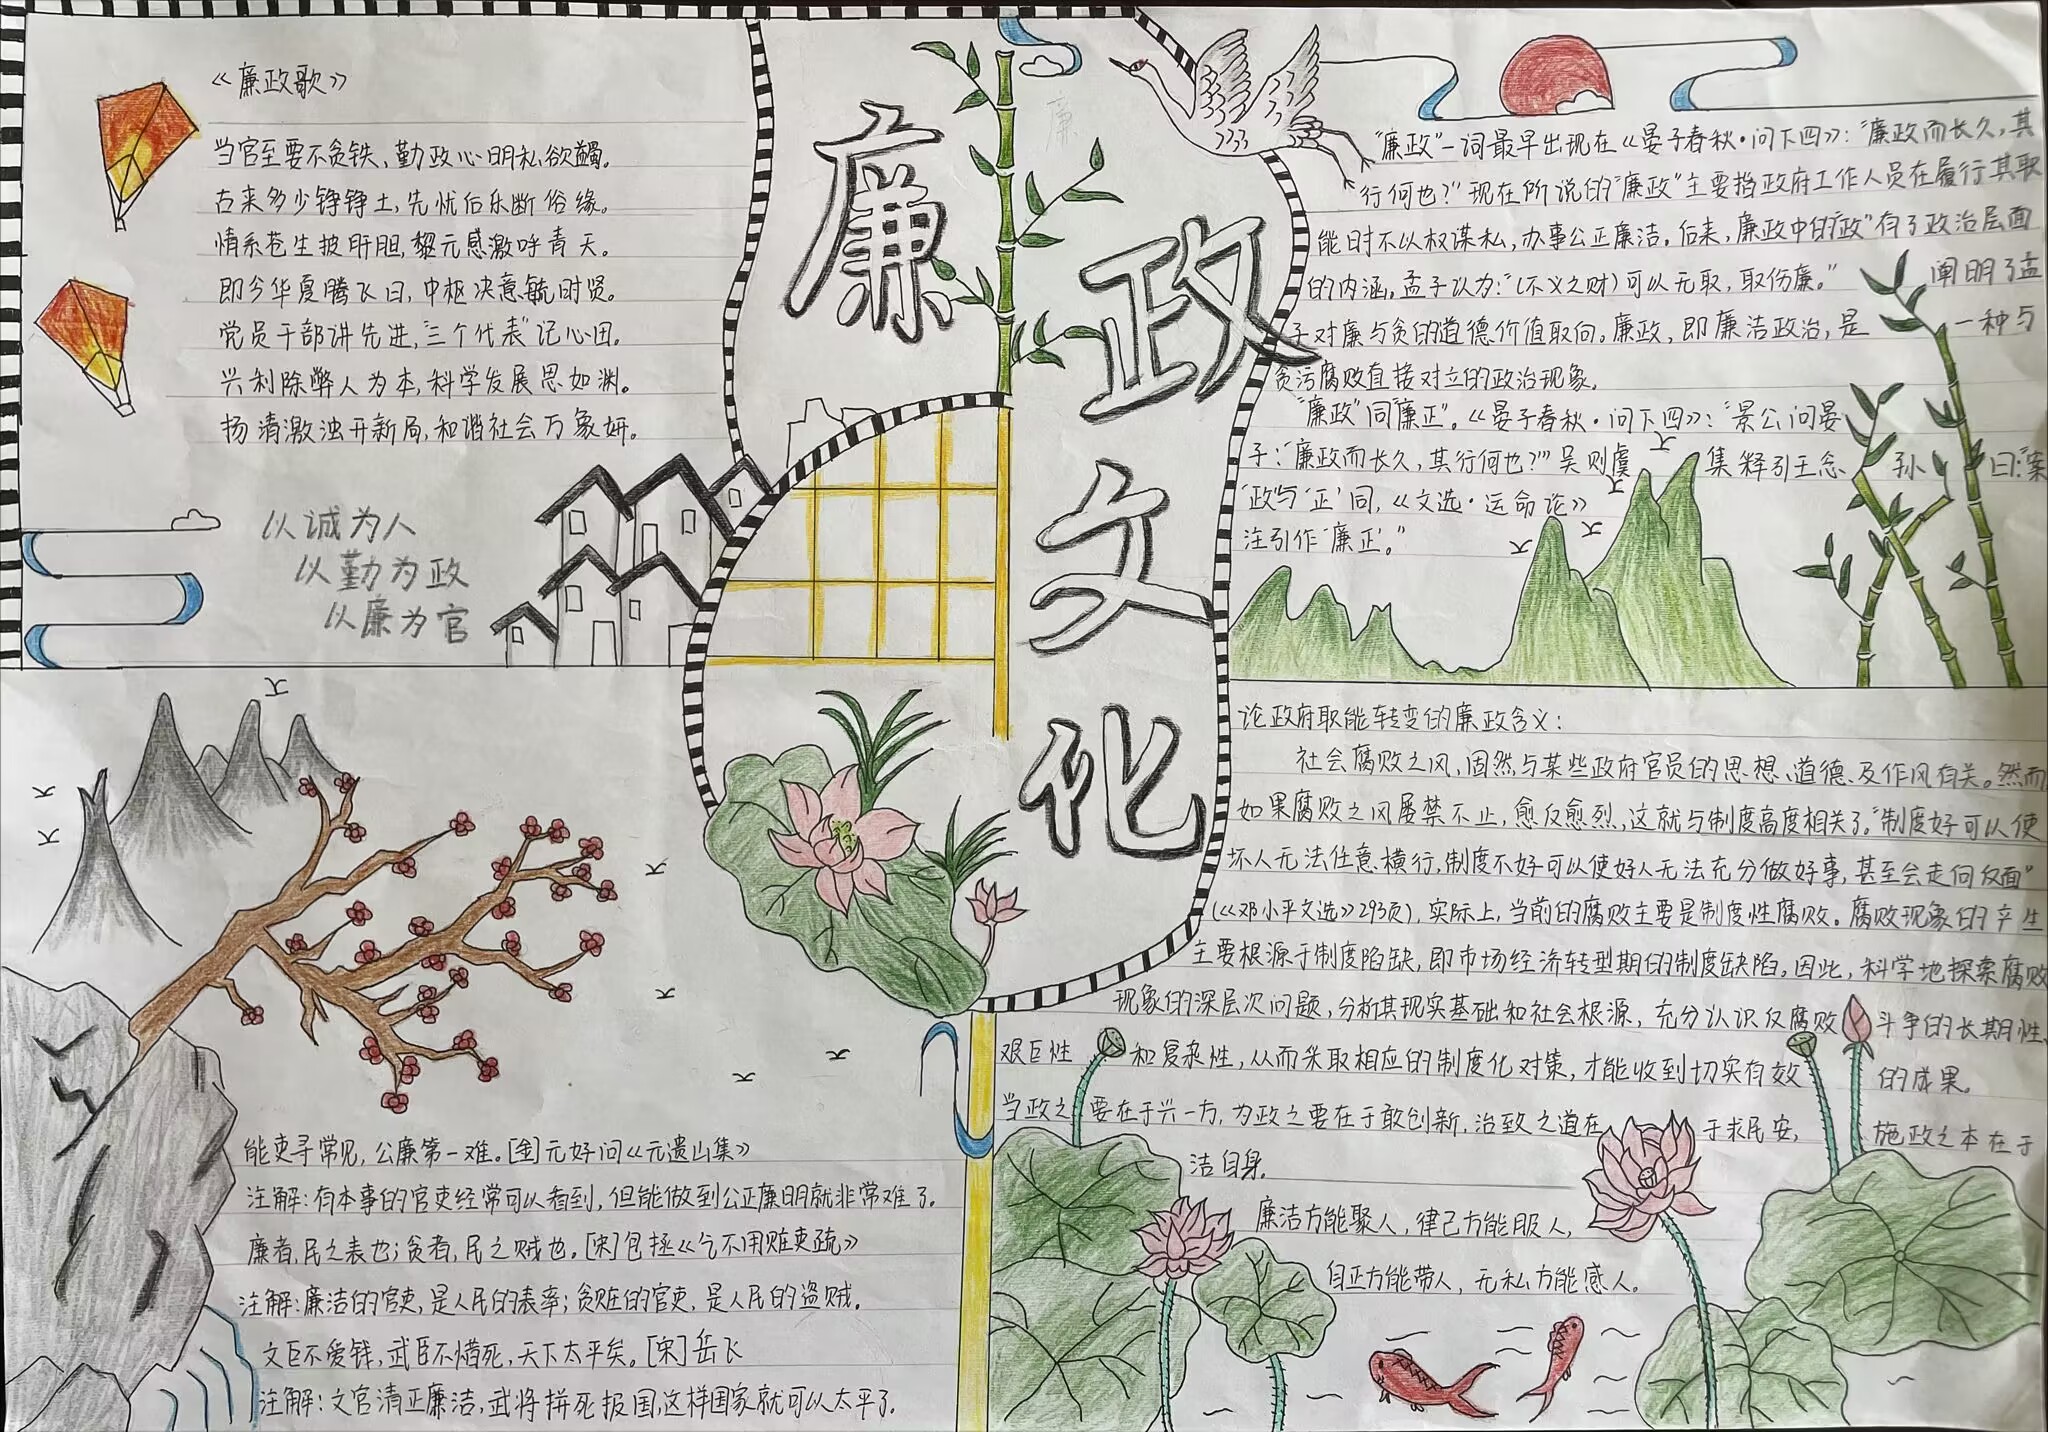 《廉政歌》
当官至要不贪铁、勤政心明私欲蠲。
古来多少铮铮士,先忧后乐断俗缘。
情系苍生披肝胆,黎元感激呼青天。
即今华夏腾飞日,中枢决意毓时贤。
党员干部讲先进,“三个代表”记心田。
兴利除弊人为本,科学发展思如渊。
扬清激浊开新局,和谐社会万象妍。
以诚为人
以勤为政
以廉为官
廉
政
文
化
廉
“廉政”一词最早出现在《晏子春秋·问下四》:“廉政而长久,其
行何也?”现在所说的“廉政”主要指政府工作人员在履行其职
能时不以权谋私,办事公正廉洁。后来,廉政中的“政”有了政治层面
的内涵。孟子认为:“(不义之财)可以无取,取伤廉。” 阐明了孟
子对廉与贪的道德价值取向。廉政,即廉洁政治,是 一种与
贪污腐败直接对立的政治现象。
“廉政”同“廉正”。《晏子春秋·问下四》:“景公问晏
子:“廉政而长久,其行何也?””吴则虞 集释引王念 孙 曰:“案
‘政’与‘正’同,《文选·运命论》
注引作‘廉正’。”
论政府职能转变的廉政含义:
社会腐败之风,固然与某些政府官员的思想、道德、及作风有关。然而
如果腐败之风屡禁不止,愈反愈烈、这就与制度高度相关了。“制度好可以使
坏人无法任意横行,制度不好可以使好人无法充分做好事,甚至会走向反面”
(《邓小平文选》293页),实际上,当前的腐败主要是制度性腐败。腐败现象的产生
主要根源于制度陷缺,即市场经济转型期的制度缺陷。因此,科学地探索腐败
现象的深层次问题,分析其现实基础和社会根源,充分认识反腐败 斗争的长期性、
艰巨性 和复杂性,从而采取相应的制度化对策,才能收到切实有效 的成果。
当政之 要在于兴一方,为政之要在于敢创新,治致之道在 于求民安, 施政之本在于
洁自身.
廉洁方能聚人,律己方能服人,
自正方能带人,无私方能感人。
能吏寻常见,公廉第一难。[金]元好问《元遗山集》
注解:有本事的官吏经常可以看到,但能做到公正廉明就非常难了.
廉者,民之表也;贪者,民之贼也。[宋]包拯《乞不用赃吏疏》
注解:廉洁的官吏,是人民的表率;贪赃的官吏,是人民的盗贼。
文臣不爱钱,武臣不惜死,天下太平矣。[宋]岳飞
注解:文官清正廉洁,武将拼死报国,这样国家就可以太平了.